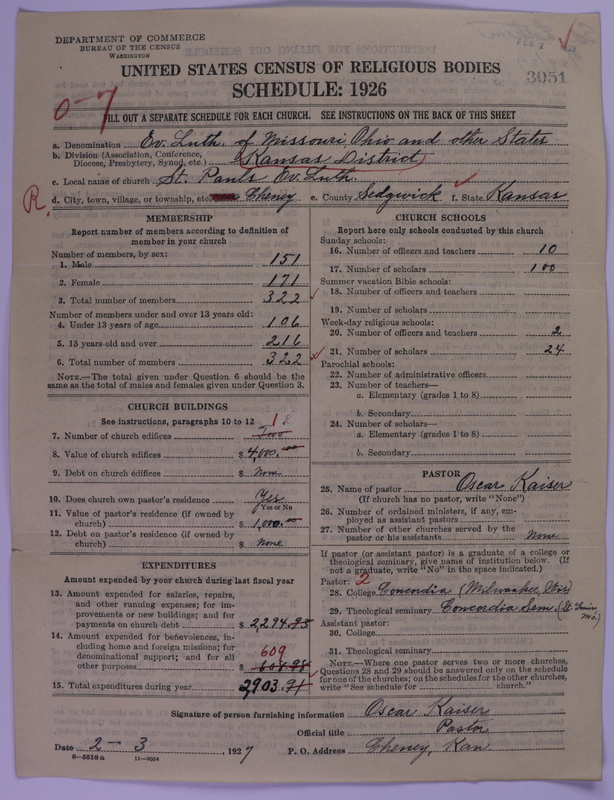 DEPARTMENT OF COMMERCE
BUREAU OF THE CENSUS
WASHINGTON
FEB 7
UNITED STATES CENSUS OF RELIGIOUS BODIES
SCHEDULE: 1926
3051
0-7
FILL OUT A SEPARATE SCHEDULE FOR EACH CHURCH. SEE INSTRUCTIONS ON THE BACK OF THIS SHEET
a. Denomination Ev. Luth. of Missouri, Ohio and other States
b. Division (Association, Conference, Diocese, Presbytery, Synod, etc.) Kansas District
c. Local name of church St. Pauls Ev. Luth.
R. d. City, town, village, or township, etc. Cheney e. County Sedgwick f. State Kansas
MEMBERSHIP
Report number of members according to definition of
member in your church
Number of members, by sex:
1. Male 151
2. Female 171
3. Total number of members 322
Number of members under and over 13 years old:
4. Under 13 years of age 106
5. 13 years old and over 216
6. Total number of members 322
NOTE.—The total given under Question 6 should be
the same as the total of males and females given under Question 3.
CHURCH BUILDINGS
See instructions, paragraphs 10 to 12
7. Number of church edifices Two 1
8. Value of church edifices $ 4,000.00
9. Debt on church edifices $ None
10. Does church own pastor's residence Yes
Yes or No
11. Value of pastor's residence (if owned by
church) $ 1,000.00
12. Debt on pastor's residence (if owned by
church) $ None
EXPENDITURES
Amount expended by your church during last fiscal year
13. Amount expended for salaries, repairs,
and other running expenses; for im-
provements or new buildings; and for
payments on church debt $ 2294.93
14. Amount expended for benevolences, in-
cluding home and foreign missions; for
denominational support; and for all
other purposes $ 608.98 609
15. Total expenditures during year 2903.91
CHURCH SCHOOLS
Report here only schools conducted by this church
Sunday schools:
16. Number of officers and teachers 10
17. Number of scholars 100
Summer vacation Bible schools:
18. Number of officers and teachers
19. Number of scholars
Week-day religious schools:
20. Number of officers and teachers 2
21. Number of scholars 24
Parochial schools:
22. Number of administrative officers
23. Number of teachers—
a. Elementary (grades 1 to 8)
b. Secondary
24. Number of scholars—
a. Elementary (grades 1 to 8)
b. Secondary
PASTOR
25. Name of pastor Oscar Kaiser
(If church has no pastor, write "None")
26. Number of ordained ministers, if any, em-
ployed as assistant pastors
27. Number of other churches served by the
pastor or his assistants None
If pastor (or assistant pastor) is a graduate of a college or
theological seminary, give name of institution below. (If
not a graduate, write "No" in the space indicated.)
Pastor: 2
28. College Concordia (Milwaukee, Wis)
29. Theological seminary Concordia Sem. (St. Louis Mo.)
Assistant pastor:
30. College
31. Theological seminary
NOTE.—Where one pastor serves two or more churches,
Questions 28 and 29 should be answered only on the schedule
for one of the churches; on the schedules for the other churches,
write "See schedule for church."
Signature of person furnishing information Oscar Kaiser
Official title Pastor
Date 2-3, 1927 P. O. Address Cheney, Kan.
8—5518a 11—9054